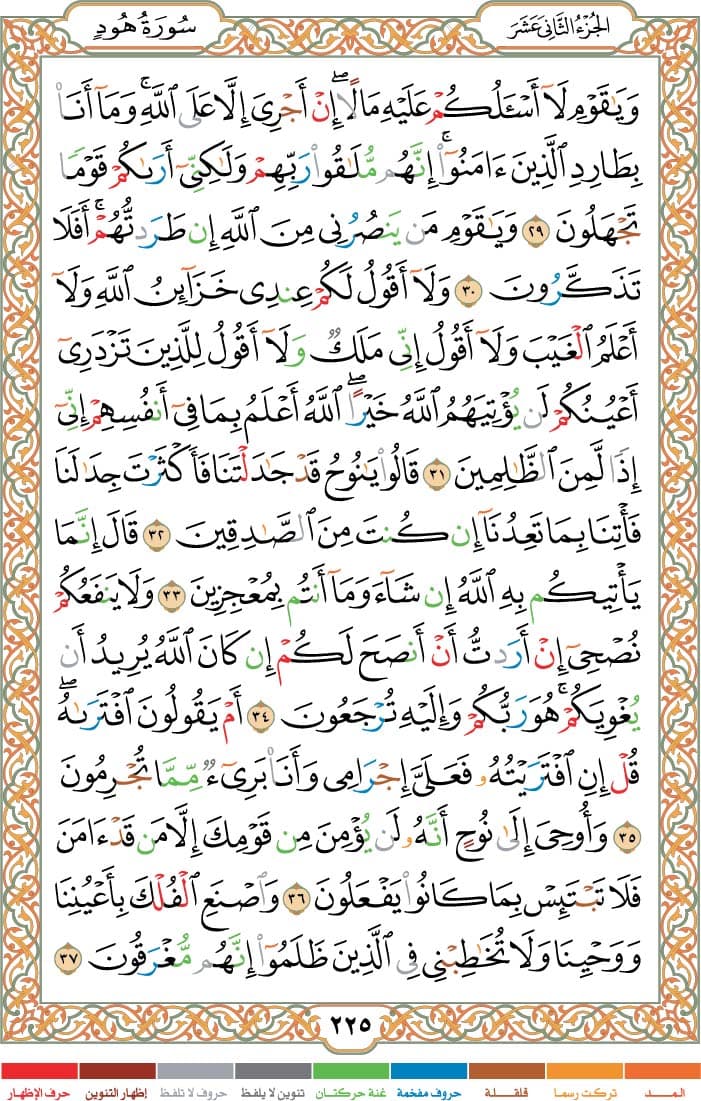 الجُزْءُ الثَّانِي عَشَرَ
سُورَةُ هُودٍ
وَيَٰقَوْمِ لَآ أَسْـَٔلُكُمْ عَلَيْهِ مَالًا ۖ إِنْ أَجْرِىَ إِلَّا عَلَى ٱللَّهِ ۚ وَمَآ أَنَا۠
بِطَارِدِ ٱلَّذِينَ ءَامَنُوٓا۟ ۚ إِنَّهُم مُّلَٰقُوا۟ رَبِّهِمْ وَلَٰكِنِّىٓ أَرَىٰكُمْ قَوْمًا
تَجْهَلُونَ ٢٩ وَيَٰقَوْمِ مَن يَنصُرُنِى مِنَ ٱللَّهِ إِن طَرَدتُّهُمْ ۚ أَفَلَا
تَذَكَّرُونَ ٣٠ وَلَآ أَقُولُ لَكُمْ عِندِى خَزَآئِنُ ٱللَّهِ وَلَآ
أَعْلَمُ ٱلْغَيْبَ وَلَآ أَقُولُ إِنِّى مَلَكٌ وَلَآ أَقُولُ لِلَّذِينَ تَزْدَرِىٓ
أَعْيُنُكُمْ لَن يُؤْتِيَهُمُ ٱللَّهُ خَيْرًا ۖ ٱللَّهُ أَعْلَمُ بِمَا فِىٓ أَنفُسِهِمْ ۖ إِنِّىٓ
إِذًا لَّمِنَ ٱلظَّٰلِمِينَ ٣١ قَالُوا۟ يَٰنُوحُ قَدْ جَٰدَلْتَنَا فَأَكْثَرْتَ جِدَٰلَنَا
فَأْتِنَا بِمَا تَعِدُنَآ إِن كُنتَ مِنَ ٱلصَّٰدِقِينَ ٣٢ قَالَ إِنَّمَا
يَأْتِيكُم بِهِ ٱللَّهُ إِن شَآءَ وَمَآ أَنتُم بِمُعْجِزِينَ ٣٣ وَلَا يَنفَعُكُمْ
نُصْحِىٓ إِنْ أَرَدتُّ أَنْ أَنصَحَ لَكُمْ إِن كَانَ ٱللَّهُ يُرِيدُ أَن
يُغْوِيَكُمْ ۚ هُوَ رَبُّكُمْ وَإِلَيْهِ تُرْجَعُونَ ٣٤ أَمْ يَقُولُونَ ٱفْتَرَىٰهُ ۖ
قُلْ إِنِ ٱفْتَرَيْتُهُۥ فَعَلَىَّ إِجْرَامِى وَأَنَا۠ بَرِىٓءٌ مِّمَّا تُجْرِمُونَ
٣٥ وَأُوحِىَ إِلَىٰ نُوحٍ أَنَّهُۥ لَن يُؤْمِنَ مِن قَوْمِكَ إِلَّا مَن قَدْ ءَامَنَ
فَلَا تَبْتَئِسْ بِمَا كَانُوا۟ يَفْعَلُونَ ٣٦ وَٱصْنَعِ ٱلْفُلْكَ بِأَعْيُنِنَا
وَوَحْيِنَا وَلَا تُخَٰطِبْنِى فِى ٱلَّذِينَ ظَلَمُوٓا۟ ۚ إِنَّهُم مُّغْرَقُونَ ٣٧
٢٢٥
المــد تركت رسما قلقلة حروف مفخمة غنة حركتان تنوين لا يلفظ حروف لا تلفظ إظهار التنوين حرف الإظهار